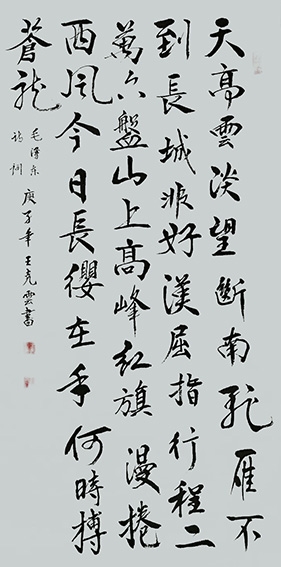 天高雲淡望斷南飛雁不
到長城非好漢屈指行程二
萬六盤山上高峰红旗漫捲
西風今日長纓在手何時搏
蒼龍
毛澤东
詩詞
庚子年王克雲書